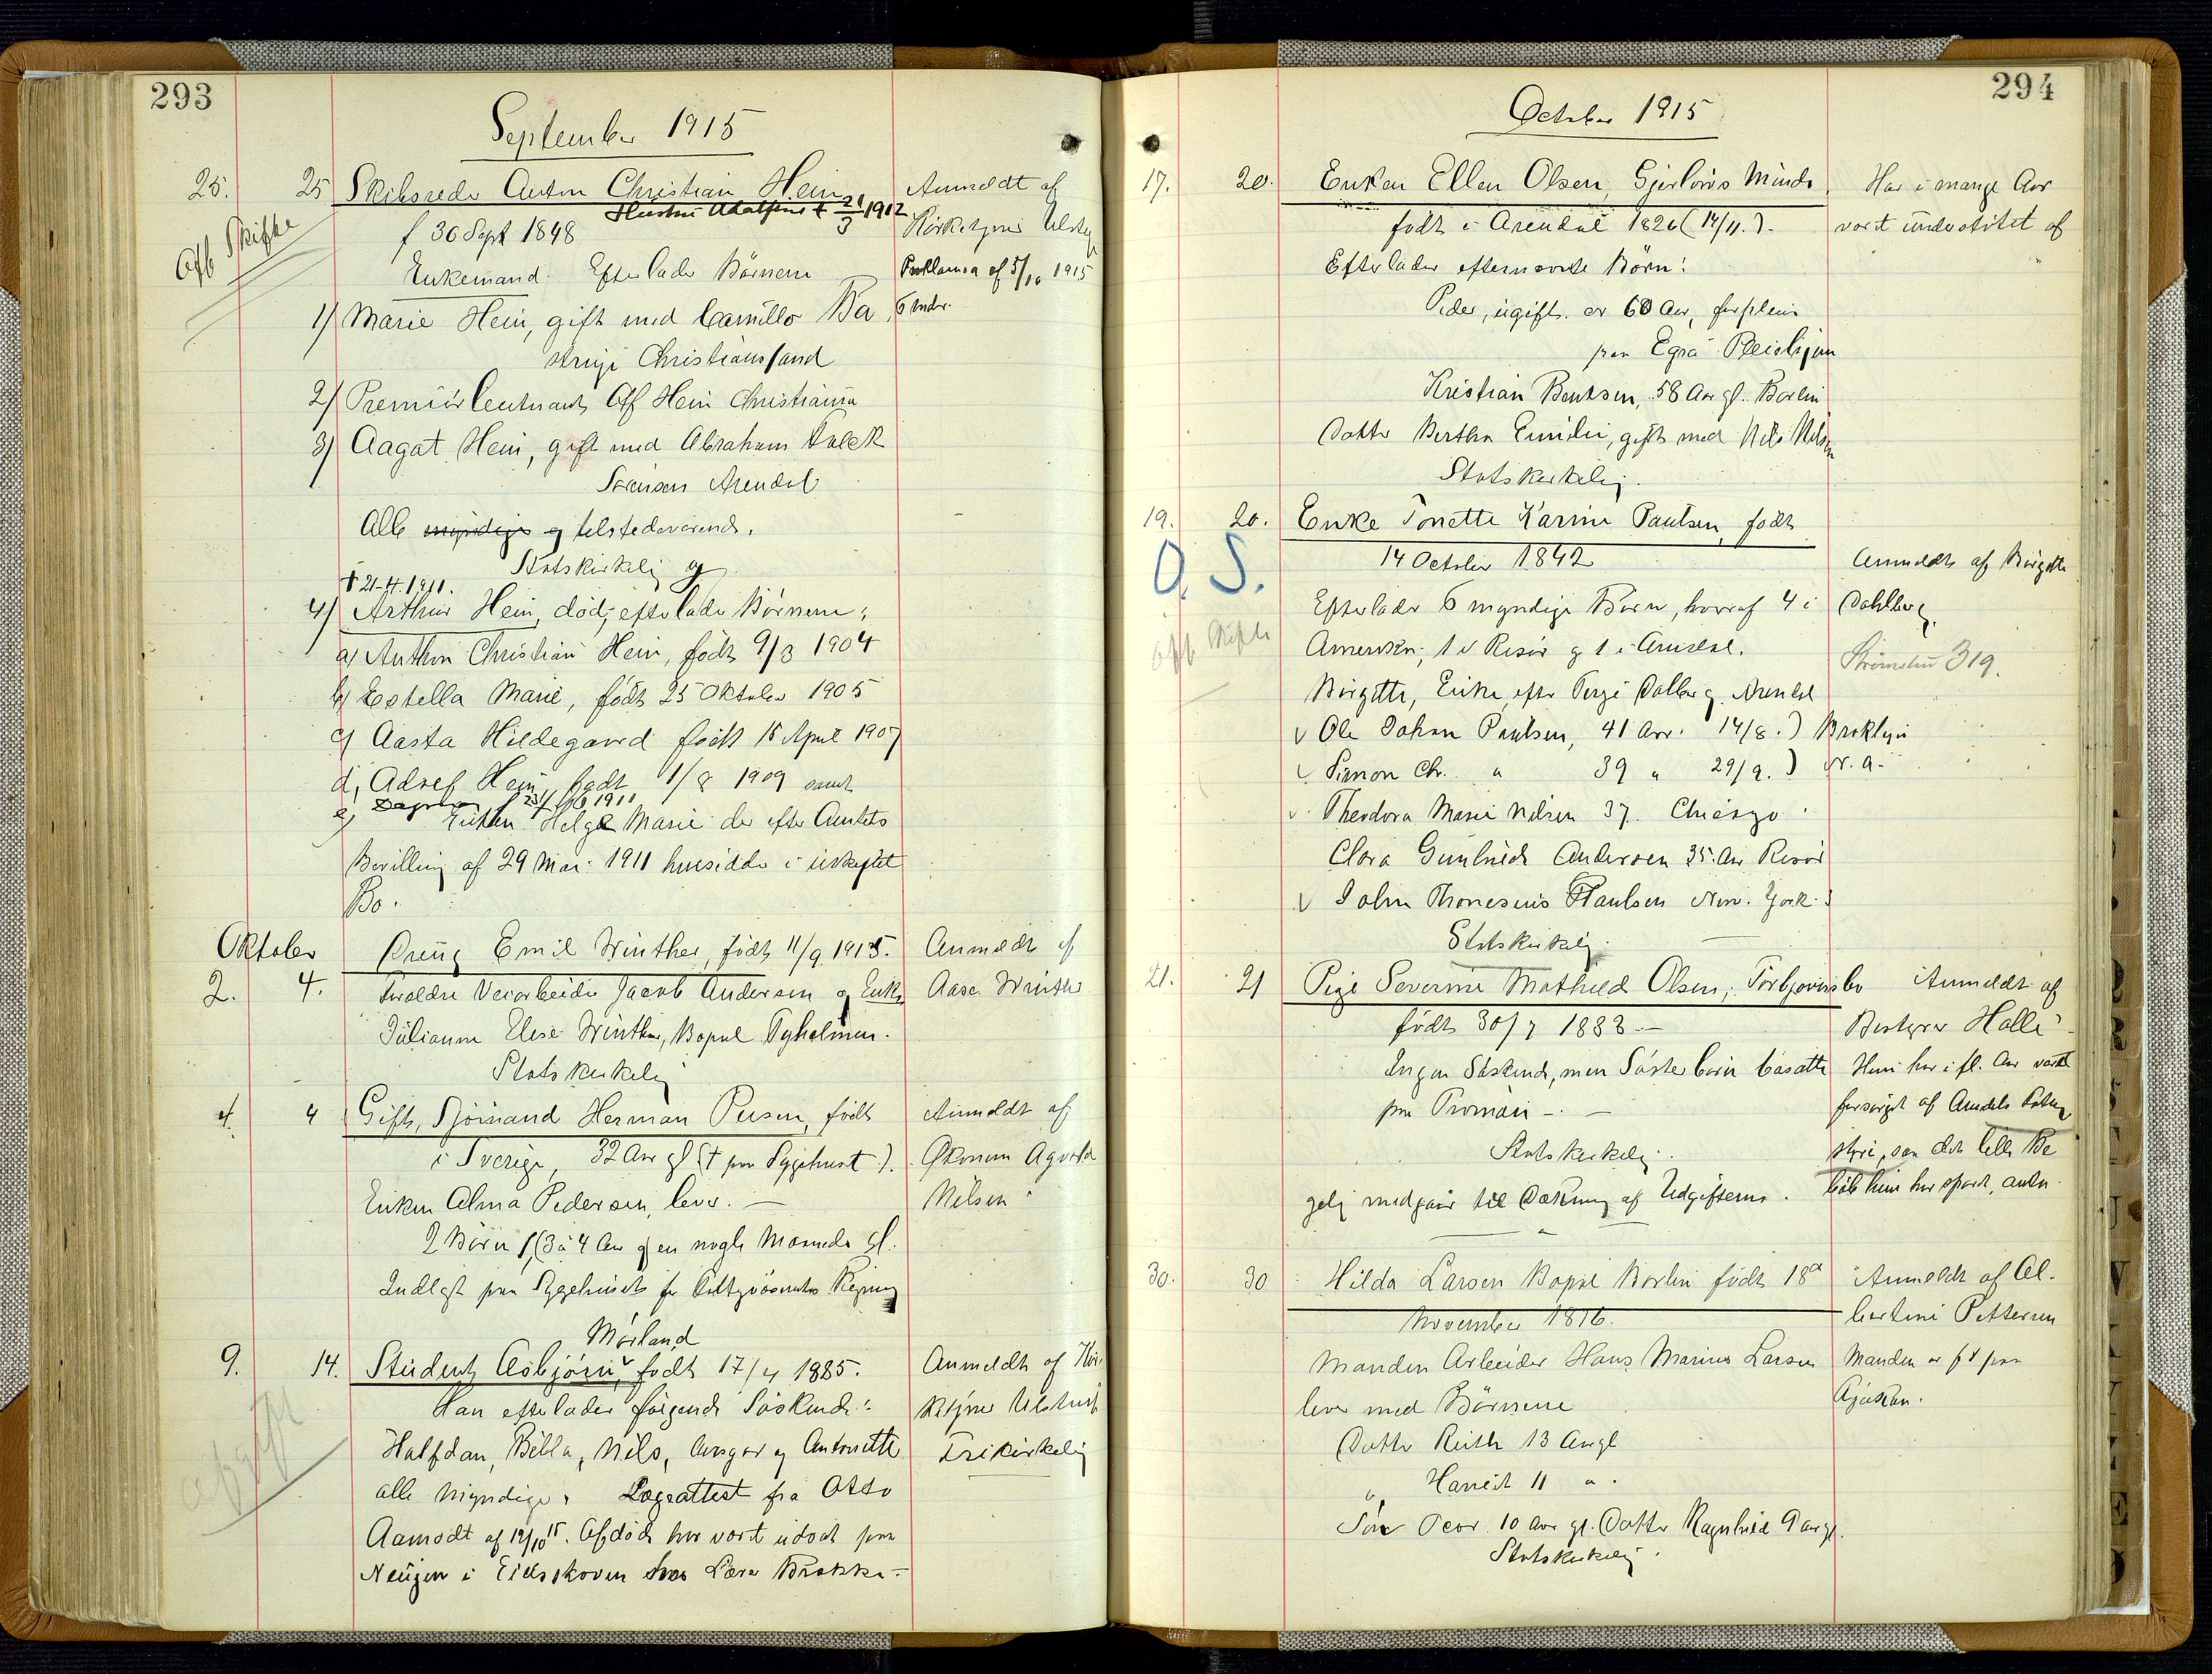 293
September 1915
25. 25 Skibsreder Anton Christian Hein
Hustru Adolfine † 21/3 1912
f 30 Sept 1848
Off Skifte
Enkemand. Efterlader Börnene
Anmeldt af
Proklama af 5/10 1915
6 Mdr.
1) Marie Hein, gift med Camillo Ba
Christianssand
2) Premierleutnant Alf Hein Christiania
3) Aagat Hein, gift med Abraham Falck
Sörensen Arendal
Alle myndige og tilstedeværende.
Statskirkelig og
† 21-4.1911.
4) Arthur Hein, död, efterlader Börnene:
a) Anthon Christian Hein, födt 9/3 1904
b) Estella Marie, födt 25 Oktober 1905
c) Aasta Hildegaard födt 15 April 1907
d) Adref Hein födt 1/8 1909 samt
e) Dagmar f 23/6 1911
Enken Helga Marie der efter Amtets
Bevilling af 29 Mai 1911 hensidder i uskiftet
Bo.
Oktober
2. 4. Dreng Emil Winther, födt 11/9 1915.
Forældre Veiarbeider Jacob Andersen og Enke
Julianne Elise Winther, Bopæl Tyholmen.
Statskirkelig
Anmeldt af
Aase Winther
4. 4 Gift, Sjömand Herman Persen, födt
i Sverige, 32 Aar gl († paa Sygehuset).
Enken Alma Pedersen, lever. —
2 Börn 1 (3 à 4 Aar og en nogle Maaneder gl.
Indlagt paa Sygehuset for Fattigvæsenets Regning
Anmeldt af
Ökonom Agvald
Nilsen
Mörland
9. 14. Student Asbjörn, födt 17/4 1885.
Han efterlader fölgende Söskende:
Halfdan, Bibla, Nils, Ansgar og Antonette
alle myndige. Lægeattest fra Otto
Aamodt af 12/10 15. Afdöde har vært udsat paa
i Eidsskoven hos Lærer Brakke -
Anmeldt af Kir
Frikirkelig
294
October 1915
17. 20. Enken Ellen Olsen, Gjerlöws Minde
födt i Arendal 1826 (14/11.).
Efterlader efternævnte Börn:
Peder, ugift. er 60 Aar, forpleies
paa Egra Pleiehjem
Kristian Bentsen, 58 Aar gl. Barbu
Datter Bertha Emilie, gift med Nils Nilsen
Statskirkelig.
Har i mange Aar
vært understöttet af
19. 20. Enke Tonette Karine Paulsen, födt
14 October 1842
O. S.
Off Skifte
Efterlader 6 myndige Börn, hvoraf 4 i
Amerika, 1 i Risör og 1 i Arendal.
Birgitte, Enke efter Terje Dalberg Arendal
v Ole Johan Paulsen, 41 Aar. 14/8.) Broklyn
v Simon Chr. " 39 " 29/9.) N. A.
v Theodora Marie Nilsen 37. Chicago
Clara Gunhild Andersen 35. Aar Risör
v John Thonesius Paulsen New. York.
Statskirkelig.
Anmeldt af Birgitte
Dahlberg.
319.
21. 21 Pige Severine Mathilde Olsen, Torbjörnsbo
födt 30/7 1883 —
Ingen Söskende, men Sösterbörn bosatte
paa Tromöen —
Statskirkelig.
gelig medgaar til Dækning af Udgifterne.
Anmeldt af
Bestyrer Halle
Hun har i fl. Aar været
forsörget af Arendals Fattig
styre, saa det lille Be
löb hun har spart, anta
30. 30 Hilda Larsen Bopæl Barbu födt 18de
November 1876.
Manden Arbeider Hans Marius Larsen
lever med Börnene
Datter Ruth 13 Aar gl
" Harriet 11 " .
Sön Peer. 10 Aar gl. Datter Ragnhild 9 aar gl.
Statskirkelig.
Anmeldt af Al-
bertine Pettersen
Manden er fdt paa